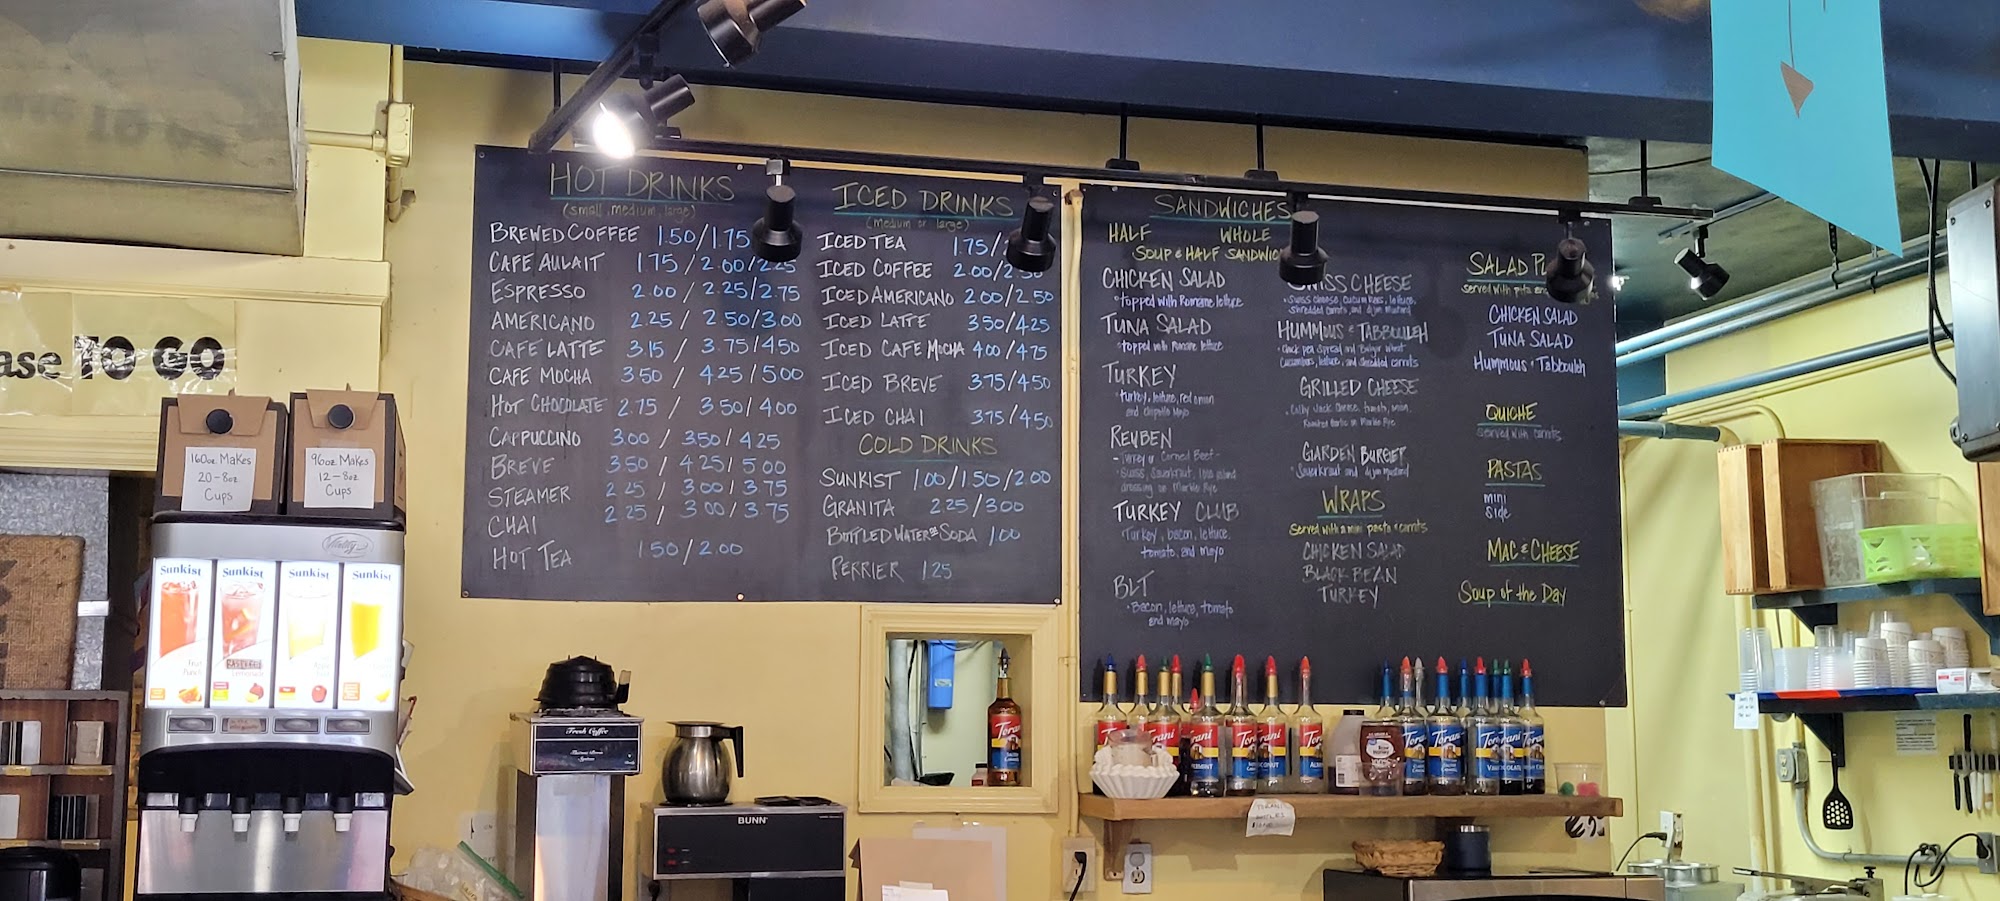 HOT DRINKS
(small, medium, large)
BREWED COFFEE 1.50/1.75
CAFE AULAIT 1.75/2.00/2.25
ESPRESSO 2.00/2.25/2.75
AMERICANO 2.25/2.50/3.00
CAFE LATTE 3.15/3.75/450
CAFE MOCHA 350/425/500
HOT CHOCOLATE 2.75/350/400
CAPPUCCINO 300/350/425
BREVE 350/425/500
STEAMER 225/300/3.75
CHAI 2.25/300/3.75
HOT TEA 150/2.00
ICED DRINKS
(medium or large)
ICED TEA 1.75/
ICED COFFEE 2.00/2.50
ICED AMERICANO 200/2.50
ICED LATTE 350/425
ICED CAFE MOCHA 400/475
ICED BREVE 375/450
ICED CHAI 375/450
COLD DRINKS
SUNKIST 1.00/1.50/2.00
GRANITA 2.25/300
BOTTLED WATER OR SODA 1.00
PERRIER 1.25
SANDWICHES
HALF WHOLE
SOUP & HALF SANDWIC
CHICKEN SALAD
• topped with Romaine lettuce
TUNA SALAD
• topped with Romaine lettuce
TURKEY
• turkey, lettuce, red onion
and chipotle mayo
REUBEN
- Turkey or Corned Beef -
• Swiss, Sauerkraut, 1000 island
dressing on Marble Rye
TURKEY CLUB
• Turkey, bacon, lettuce,
tomato, and mayo
BLT
• Bacon, lettuce, tomato
and mayo
SWISS CHEESE
• Swiss cheese, cucumbers, lettuce,
shredded carrots, and dijon mustard
HUMMOUS & TABBOULEH
• Chick pea spread and Bulgar wheat
Cucumbers, lettuce, and shredded carrots
GRILLED CHEESE
• Colby Jack Cheese, tomato, onion,
Roasted Garlic on Marble Rye
GARDEN BURGER
• Sauerkraut and dijon mustard
WRAPS
Served with a mini pasta & carrots
CHICKEN SALAD
BLACK BEAN
TURKEY
SALAD PL
served with pita and
CHICKEN SALAD
TUNA SALAD
Hummous & Tabbouleh
QUICHE
served with carrots
PASTAS
mini
side
MAC & CHEESE
Soup of the Day
ase TO GO
160oz. Makes
20-8oz
Cups
96oz. Makes
12-8oz
Cups
Vitality
Sunkist
Sunkist
Sunkist
Sunkist
Fruit
Punch
RASPBERRY
Lemonade
Apple
Fresh Coffee
BUNN
Torani
Torani
Torani
Torani
Torani
Torani